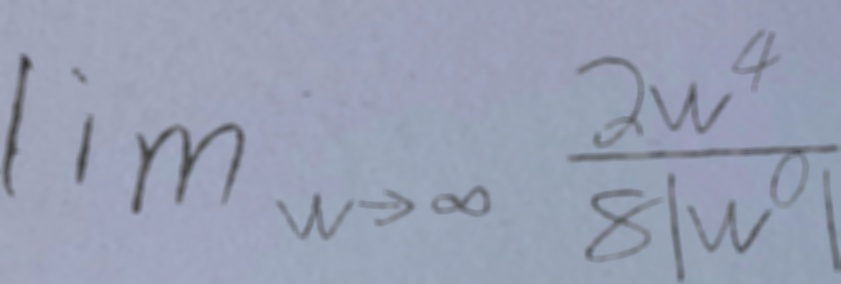 \lim_{w \to \infty} \frac{2w^4}{8|w^0|}